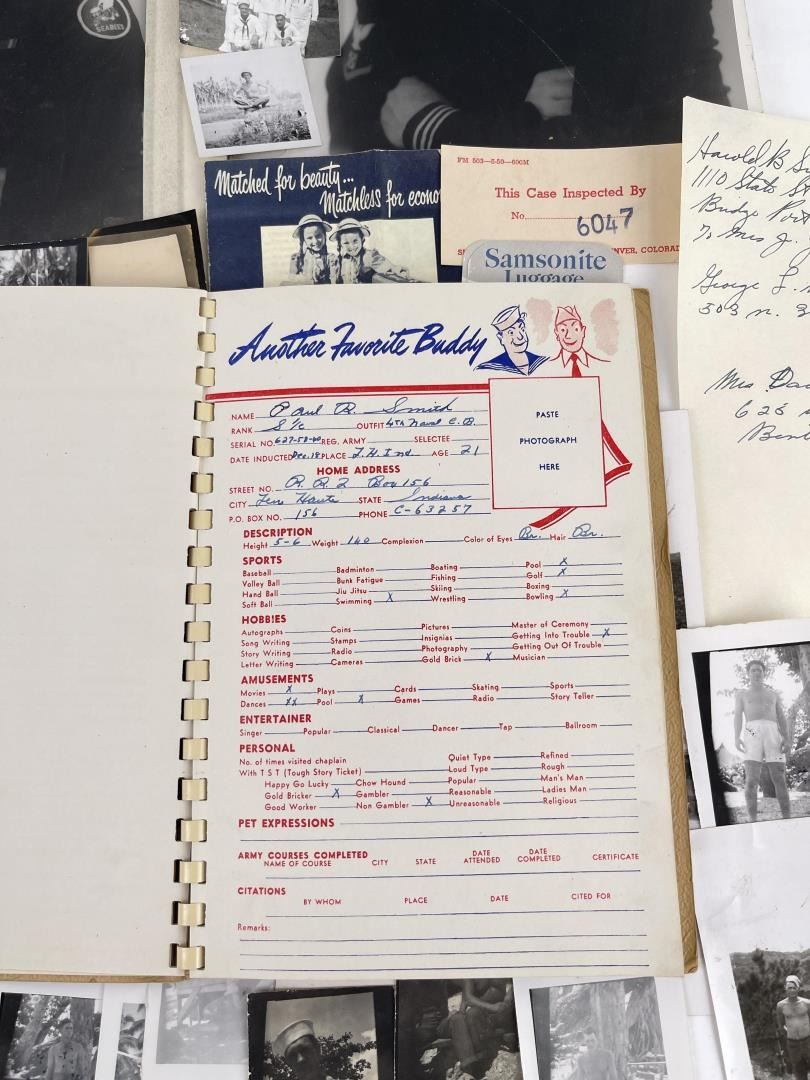 SEABEES
Matched for beauty...
Matchless for econo
FM 503—5-50—600M
This Case Inspected By
No. 6047
NVER, COLORAD
Samsonite
Luggage
Harold B
1110 State St
Bridge Port
% Mrs J.
George L.
503 n. 3
Mrs
628
Another Favorite Buddy
PASTE
PHOTOGRAPH
HERE
NAME Paul R. Smith
RANK S 1/c OUTFIT 4TH Naval C. B.
SERIAL NO. 627-58-00 REG. ARMY SELECTEE
DATE INDUCTED Dec. 18 PLACE T. H. Ind AGE 21
HOME ADDRESS
STREET NO. R. R. 2 Box 156
CITY Terre Haute STATE Indiana
P.O. BOX NO. 156 PHONE C-63257
DESCRIPTION
Height 5-6 Weight 140 Complexion Color of Eyes Br. Hair Br.
SPORTS
Baseball Badminton Boating Pool X
Volley Ball Bunk Fatigue Fishing Golf X
Hand Ball Jiu Jitsu Skiing Boxing
Soft Ball Swimming X Wrestling Bowling X
HOBBIES
Autographs Coins Pictures Master of Ceremony
Song Writing Stamps Insignias Getting Into Trouble X
Story Writing Radio Photography Getting Out Of Trouble
Letter Writing Cameras Gold Brick X Musician
AMUSEMENTS
Movies X Plays Cards Skating Sports
Dances XX Pool X Games Radio Story Teller
ENTERTAINER
Singer Popular Classical Dancer Tap Ballroom
PERSONAL
No. of times visited chaplain Quiet Type Refined
With T S T (Tough Story Ticket) Loud Type Rough
Happy Go Lucky Chow Hound Popular Man's Man
Gold Bricker X Gambler Reasonable Ladies Man
Good Worker Non Gambler X Unreasonable Religious
PET EXPRESSIONS
ARMY COURSES COMPLETED
NAME OF COURSE CITY STATE DATE ATTENDED DATE COMPLETED CERTIFICATE
CITATIONS
BY WHOM PLACE DATE CITED FOR
Remarks: